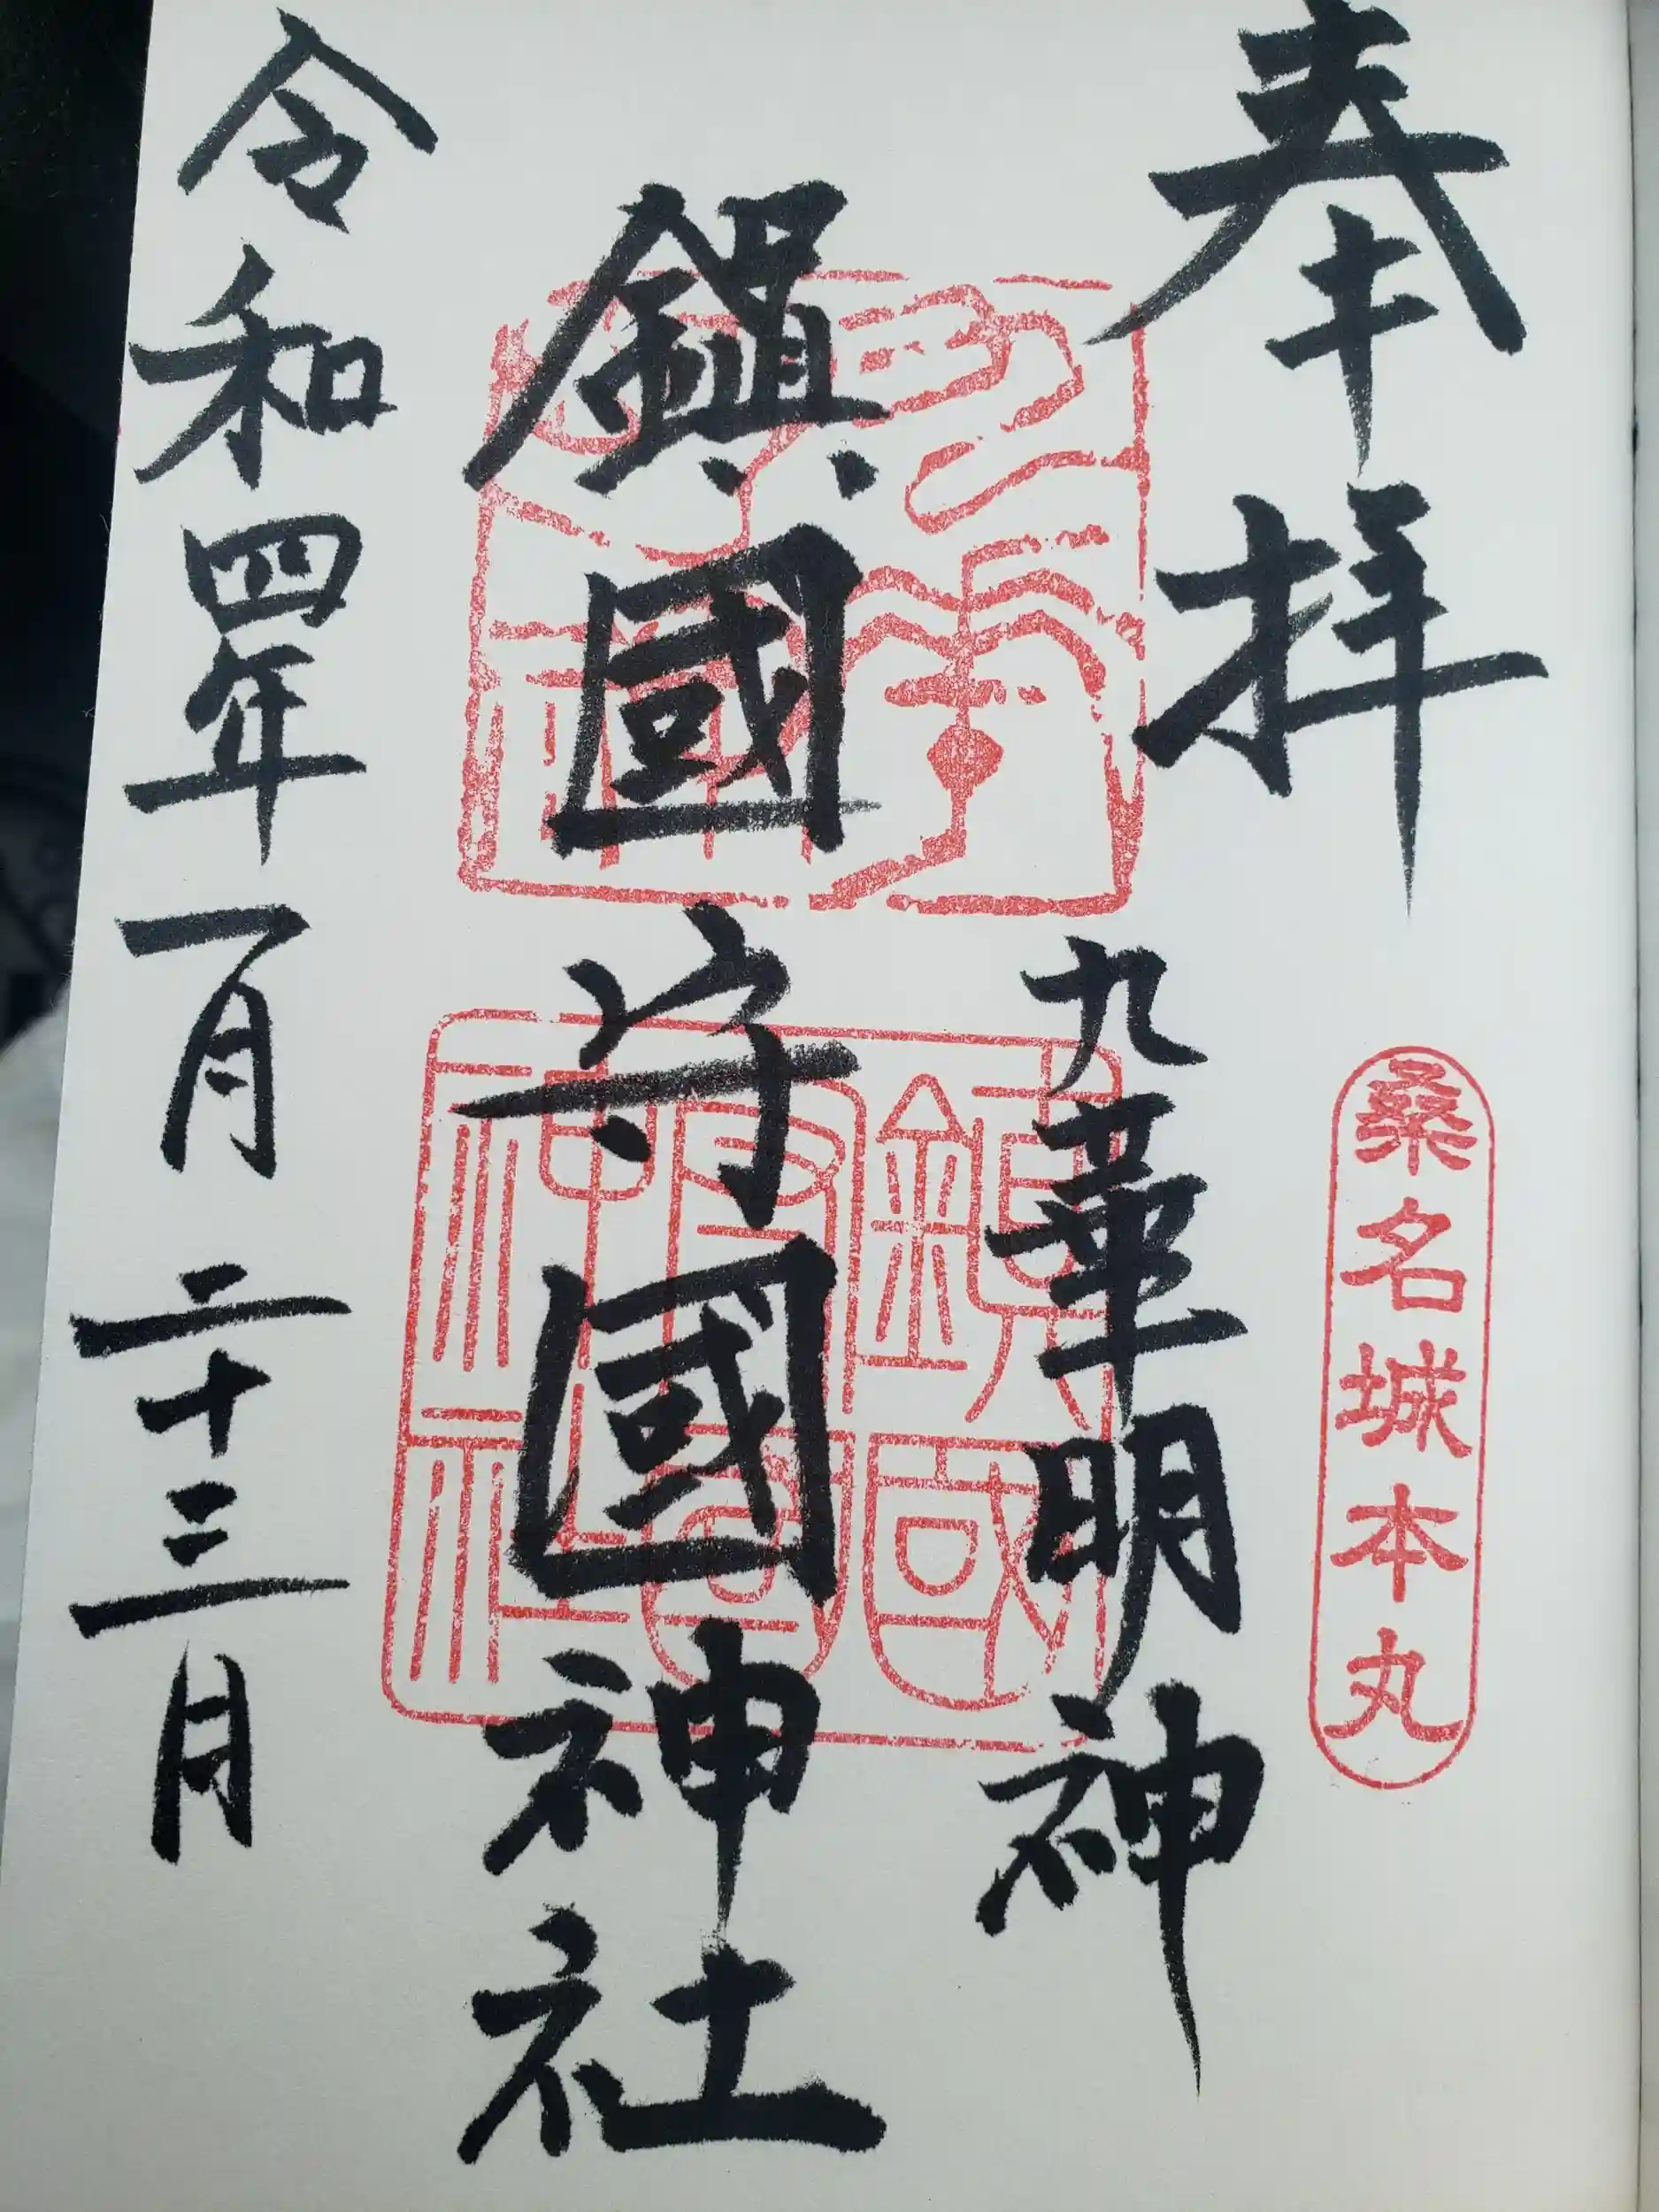 奉拝
桑名城本丸
九華明神
鎮國守國神社
令和四年一月二十三日
九華明神
鎮國守國神社